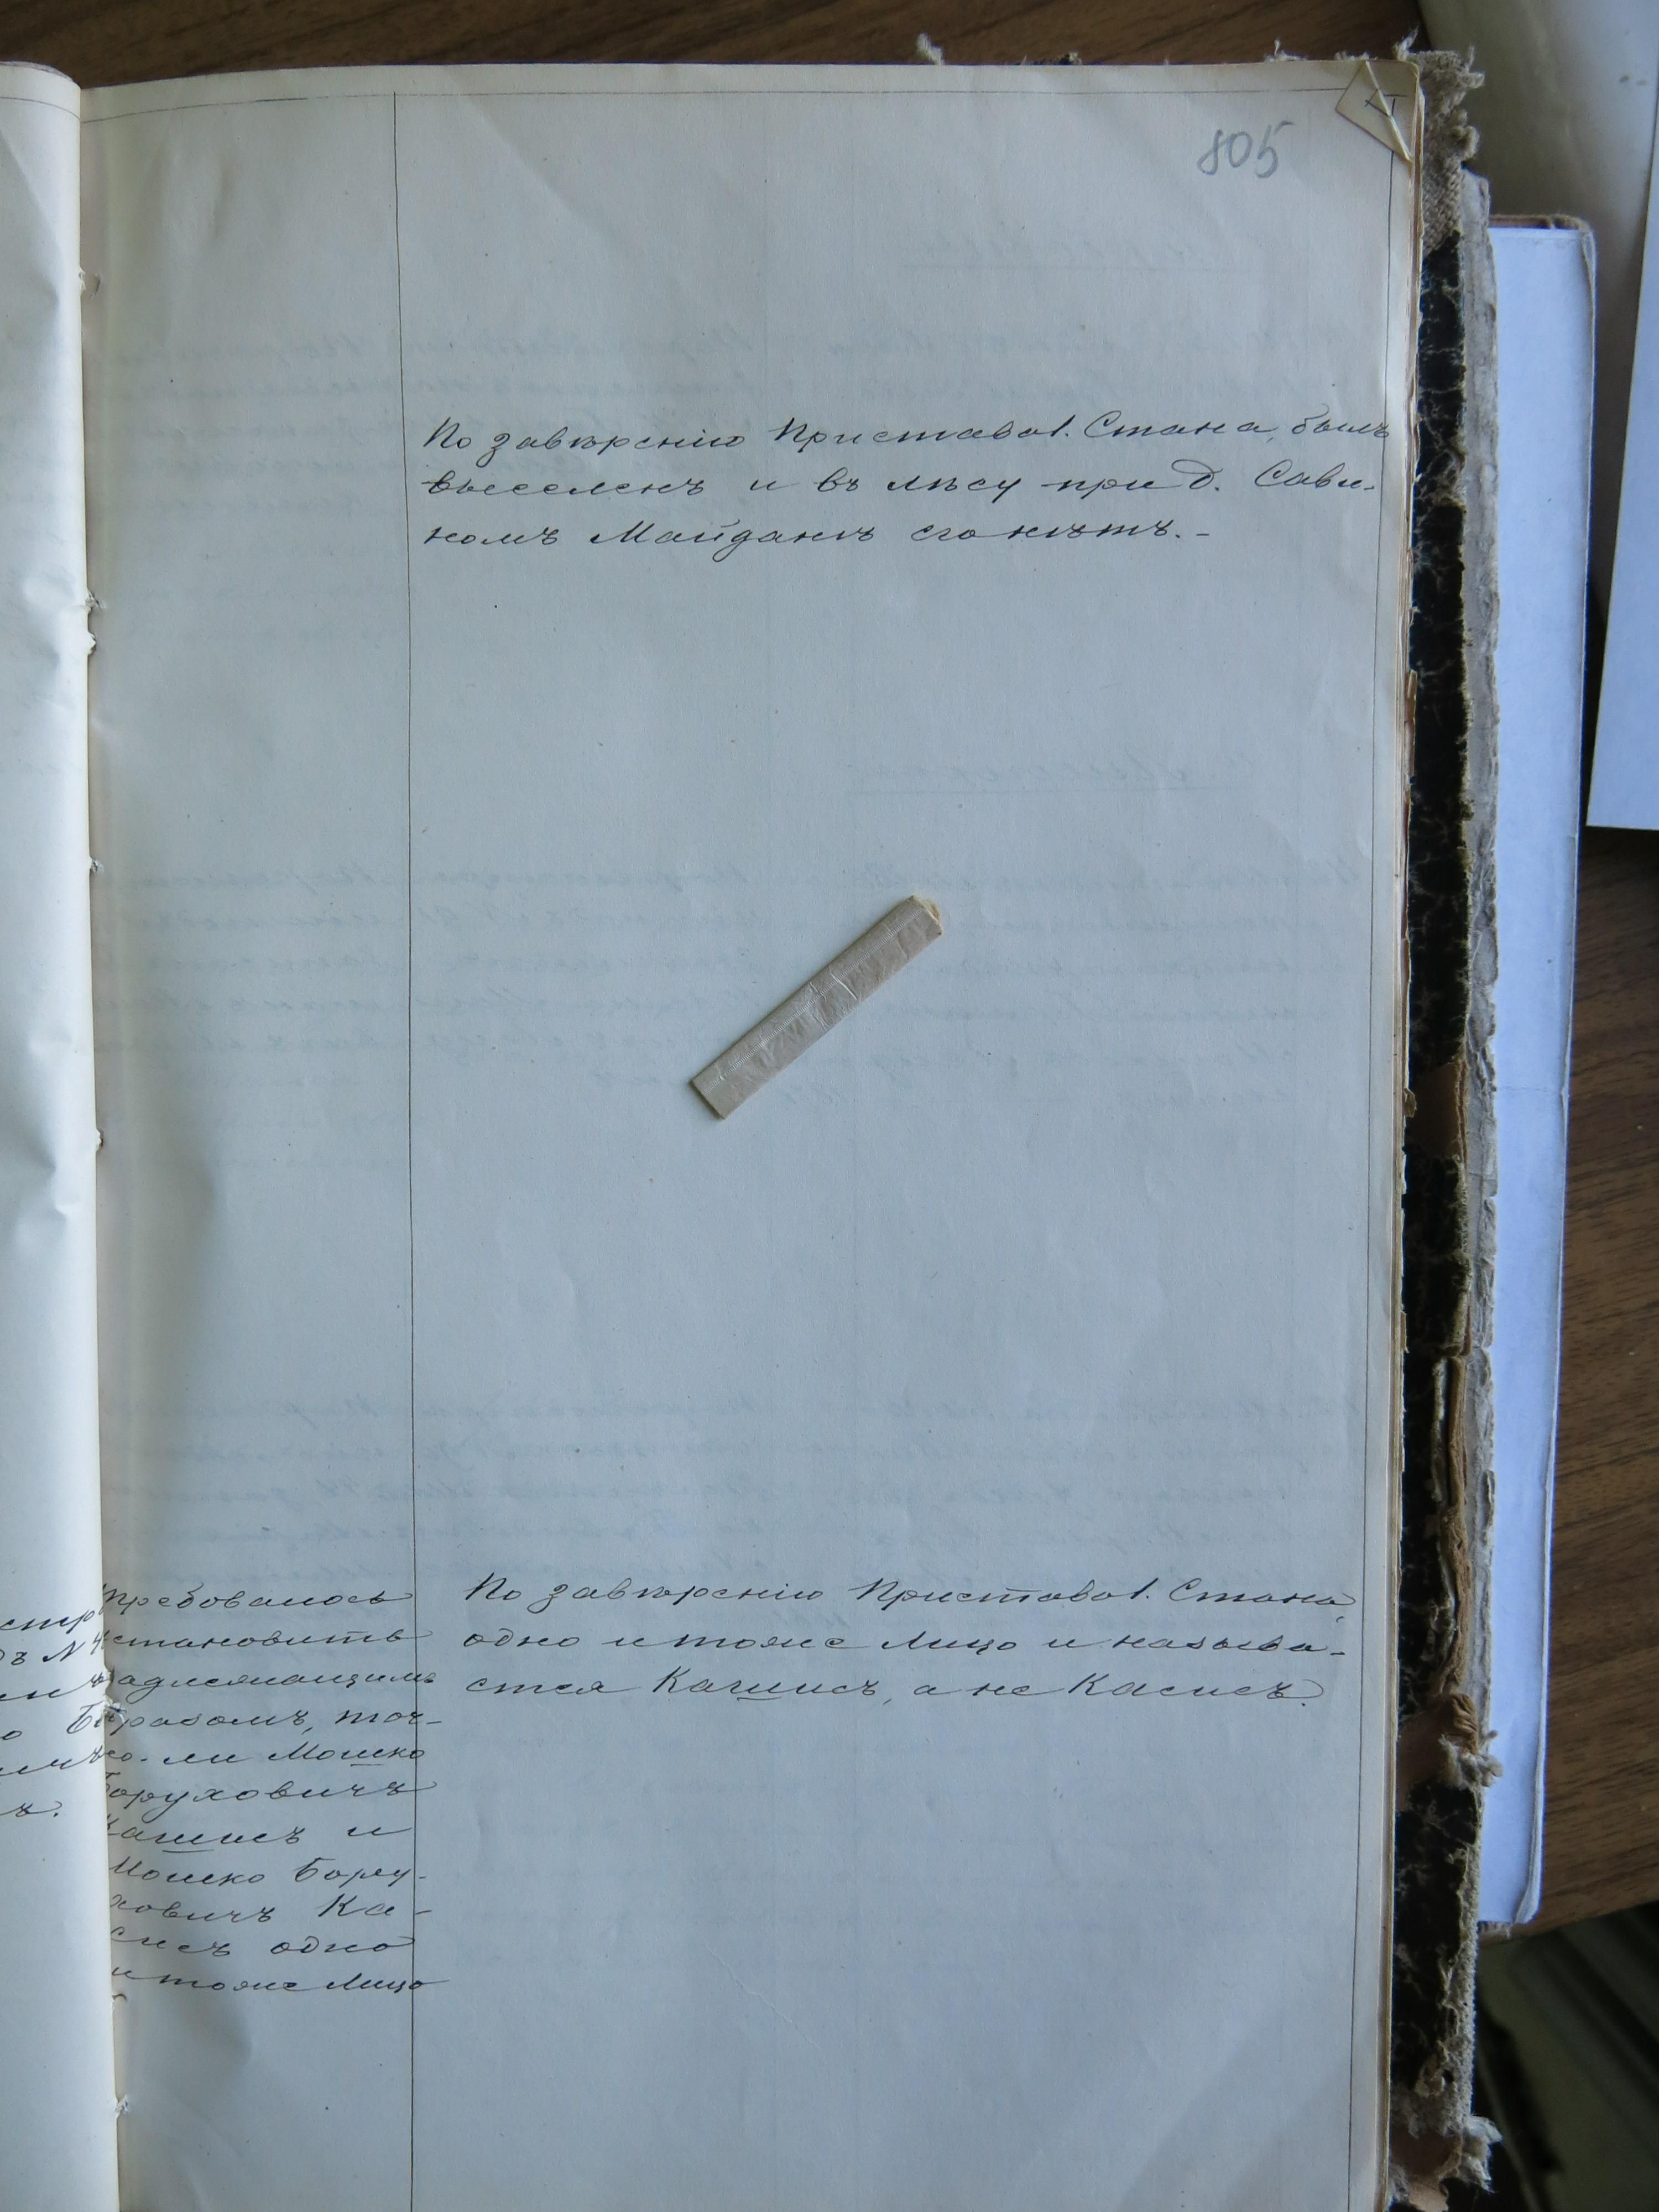 805
По завѣренію Пристава 1. Стана, былъ
выселенъ и въ лѣсу при д. Сави-
номъ Майданѣ его нѣтъ. -
требовалось
становить
адлежащимъ
разомъ, точ-
но-ли Мошко
Боруховичъ
Кашисъ и
Мошко Бору-
ховичъ Ка-
сисъ одно
и тоже лицо
По завѣренію Пристава 1. Стана,
одно и тоже лицо и называ-
ется Кашисъ, а не Касисъ.